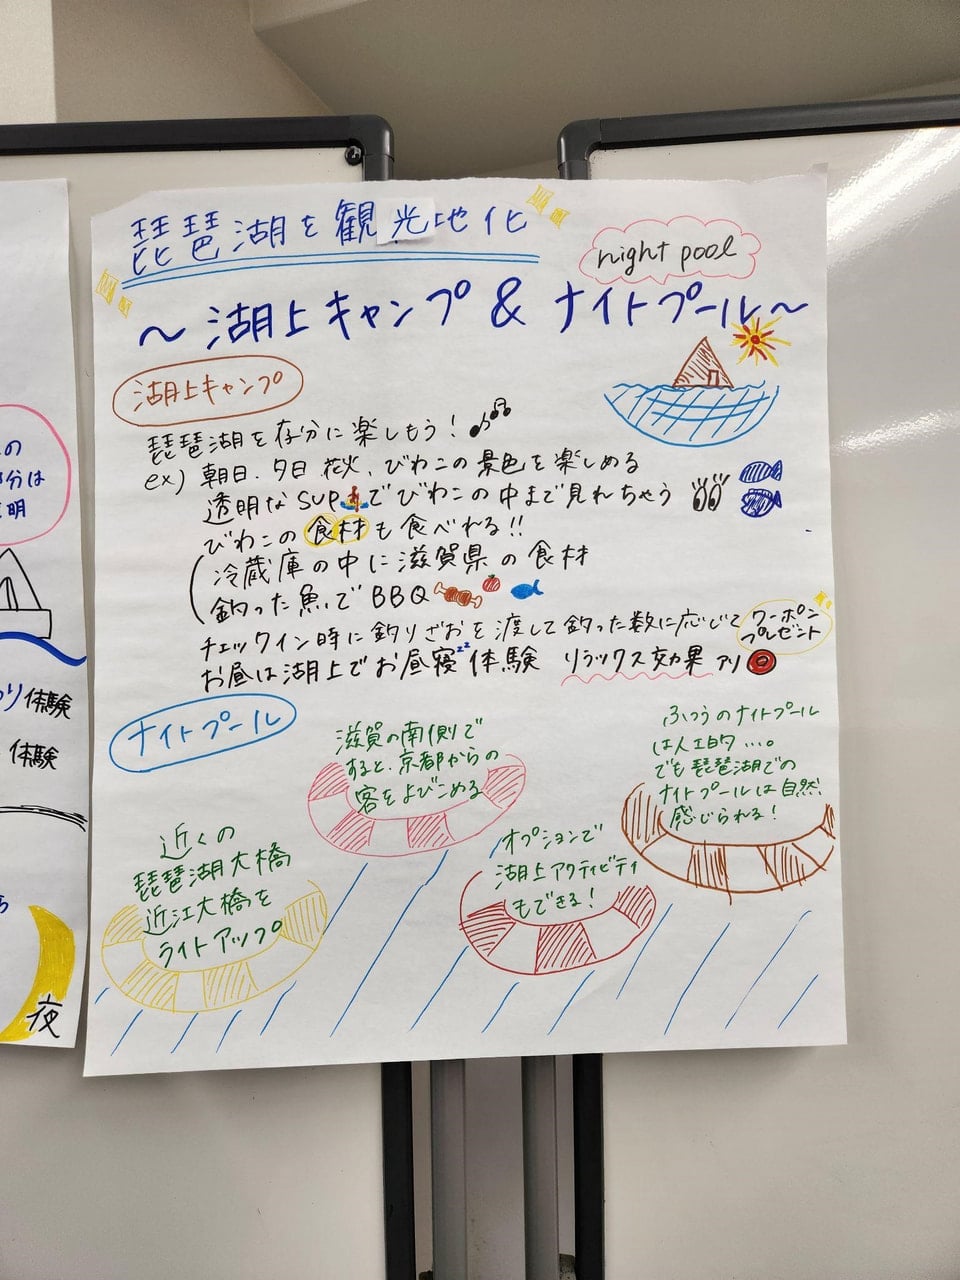 琵琶湖を観光地化
night pool
～湖上キャンプ & ナイトプール～
湖上キャンプ
琵琶湖を存分に楽しもう!
ex) 朝日、夕日、花火、びわこの景色を楽しめる
透明なSUPでびわこの中まで見れちゃう
びわこの食材も食べれる!!
冷蔵庫の中に滋賀県の食材
釣った魚でBBQ
チェックイン時に釣りざおを渡して釣った数に応じて クーポン
プレゼント
お昼は湖上でお昼寝zz体験 リラックス効果アリ
ナイトプール
滋賀の南側で
すると、京都からの
客をよびこめる
ふつうのナイトプール
は人工的...。
でも琵琶湖での
ナイトプールは自然
感じられる!
近くの
琵琶湖大橋
近江大橋を
ライトアップ
オプションで
湖上アクティビティ
もできる!
の
分は
明
り体験
体験
夜